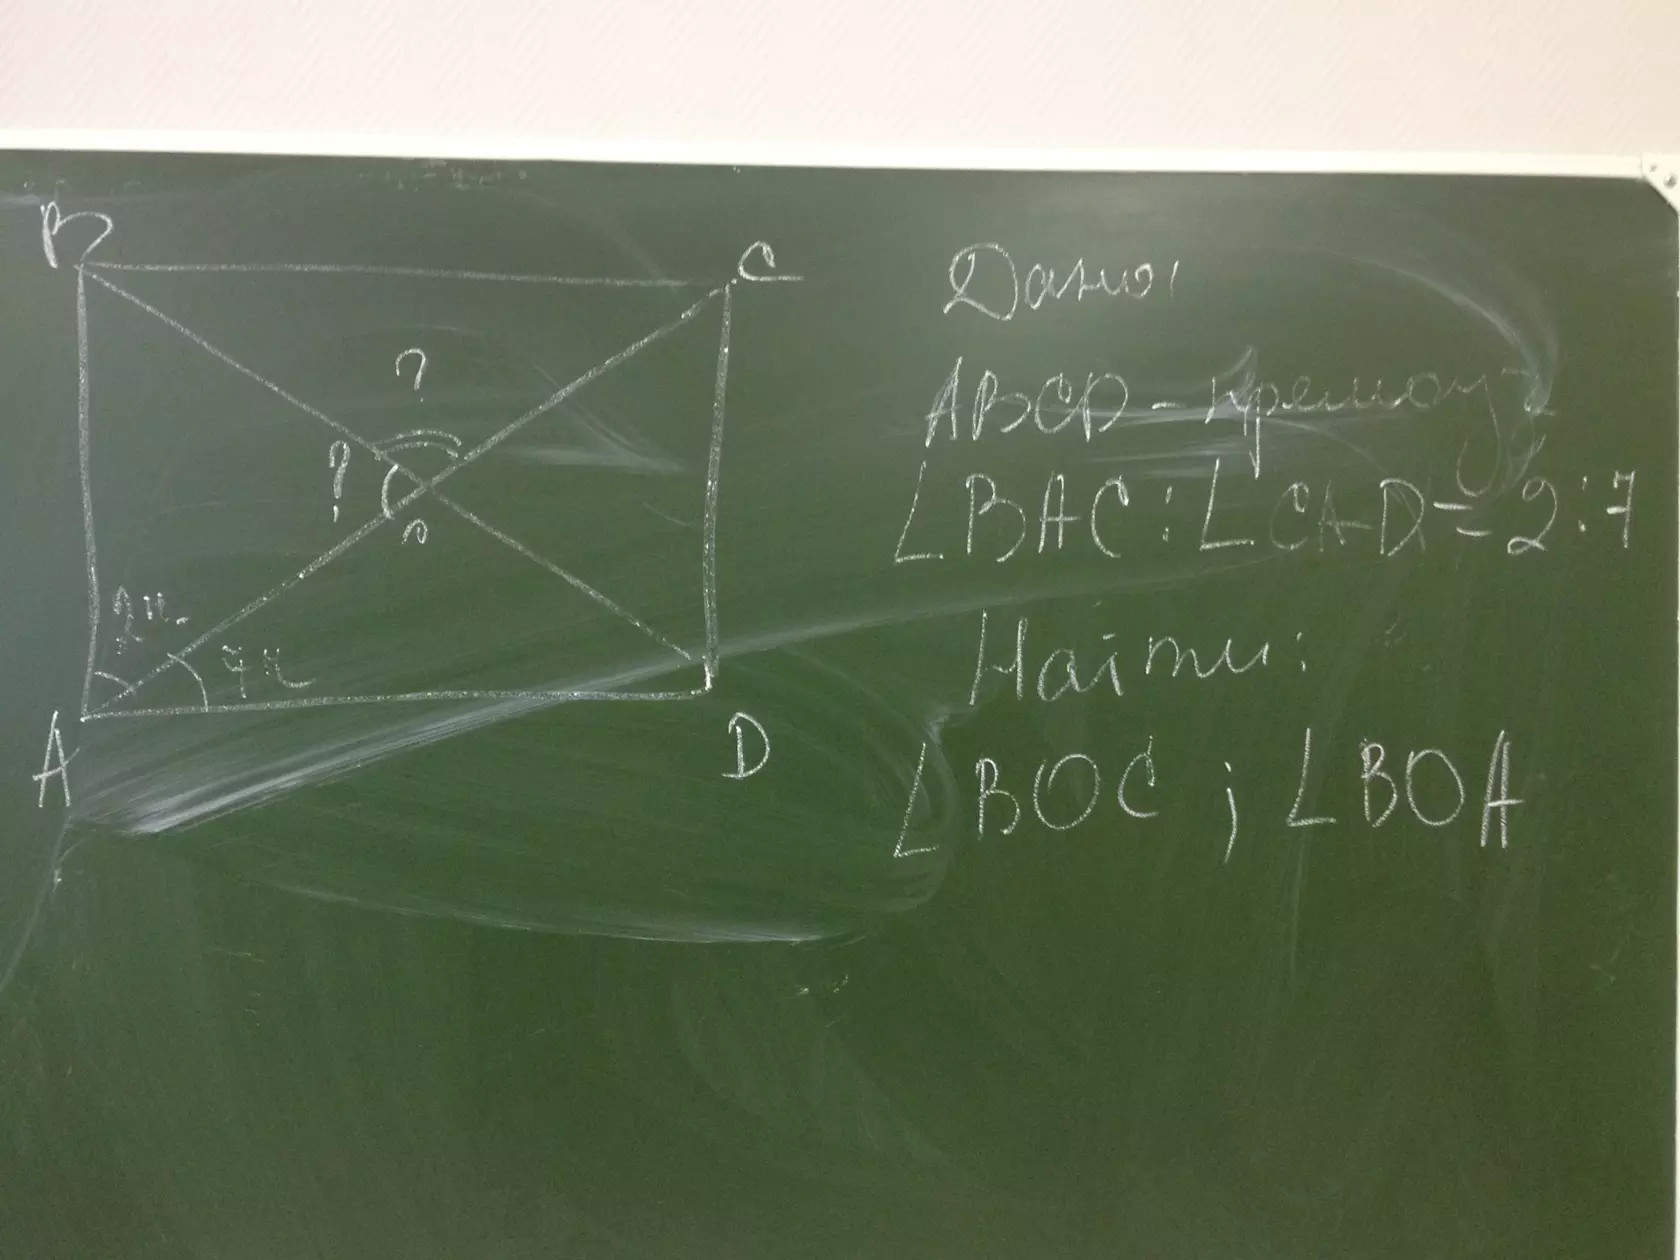 B
C
?
?
O
2x
7x
A
D
Дано:
ABCD - прямоуг
∠BAC : ∠CAD = 2:7
Найти:
∠BOC ; ∠BOA